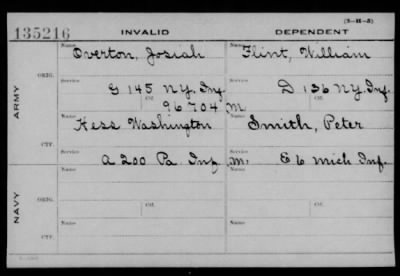 (3-H-5)
135216 INVALID DEPENDENT
Name Name
Overton, Josiah Flint, William
ORIG.
Service Service
G 145 N.Y. Inf. D 136 N.Y. Inf.
Ctf. Ctf.
96704 M.
ARMY
Name Name
Hess Washington Smith, Peter
CTF.
Service Service
A 200 Pa Inf. M. E 6 Mich Inf.
Name Name
ORIG.
Service Service
Ctf. Ctf.
NAVY
Name Name
CTF.
Service Service